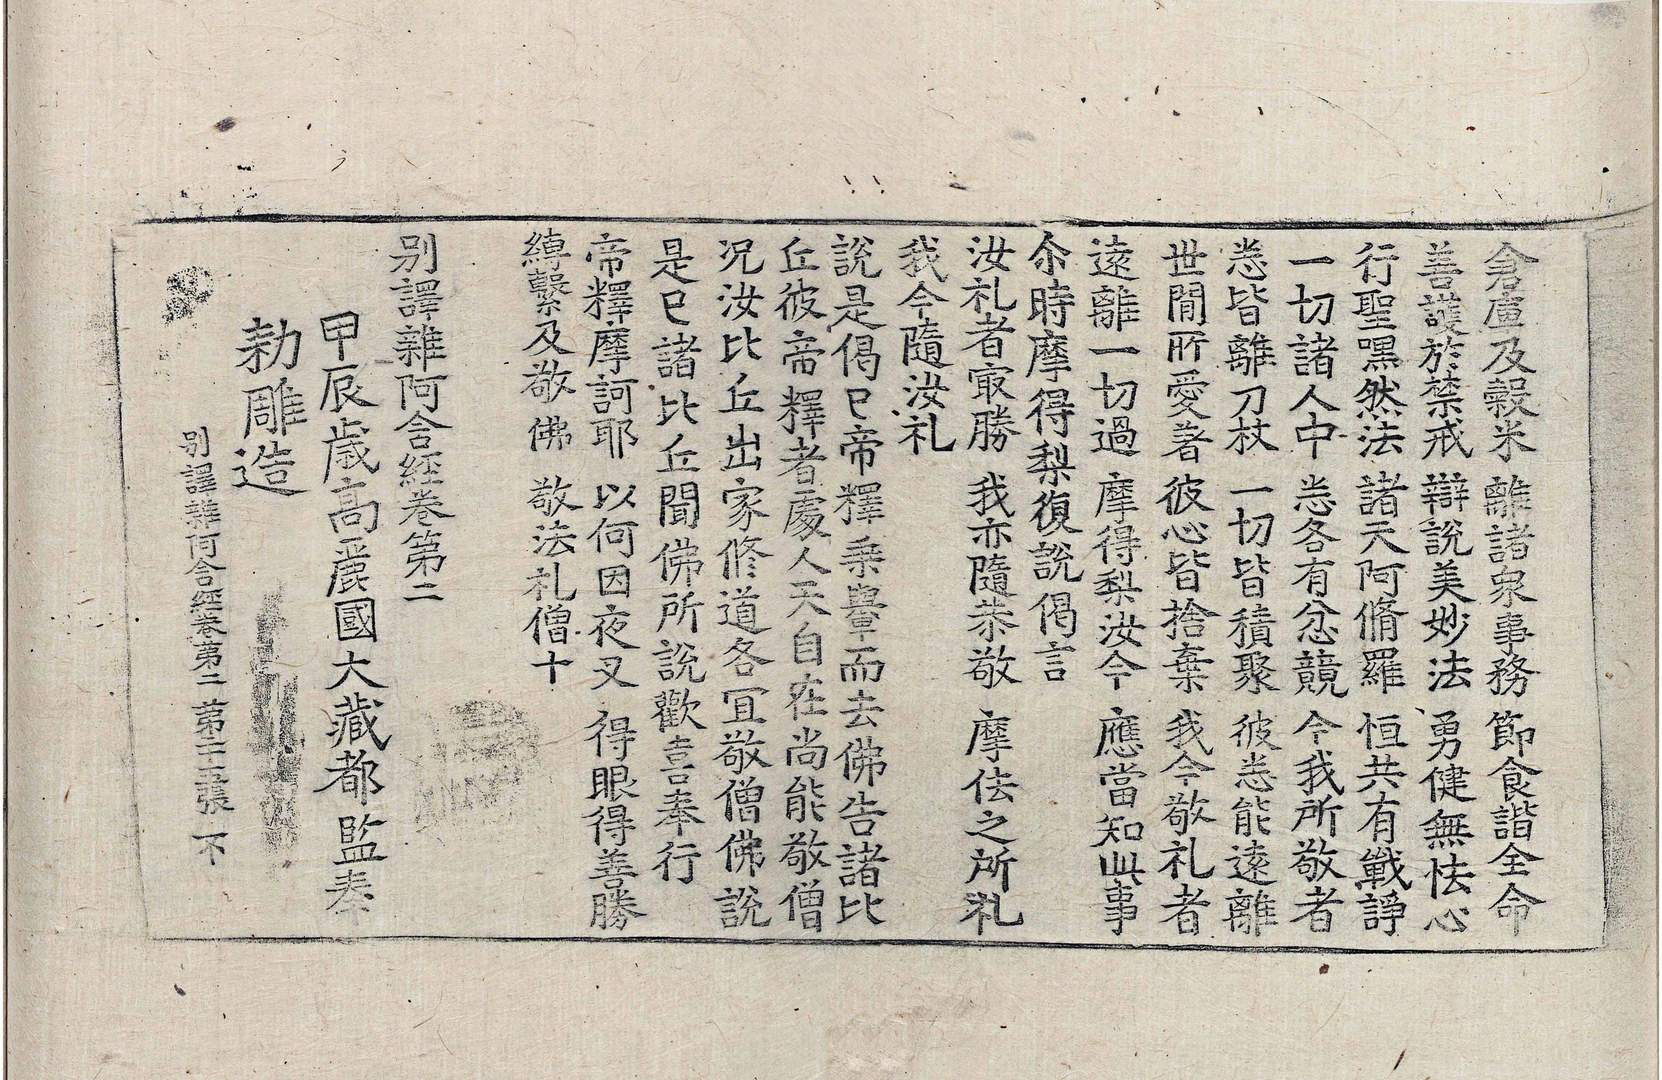 倉庫及穀米 離諸衆事務 節食諧全命
善護於禁戒 辯說美妙法 勇健無怯心
行聖嘿然法 諸天阿脩羅 恒共有戰諍
一切諸人中 悉各有忿競 今我所敬者
悉皆離刀杖 一切皆積聚 彼悉能遠離
世間所愛著 彼心皆捨棄 我今敬礼者
遠離一切過 摩得梨汝今 應當知此事
尒時摩得梨復說偈言
汝礼者㝡勝 我亦隨恭敬 摩佉之所礼
我今隨汝礼
說是偈已帝釋乗轝而去佛告諸比
丘彼帝釋者處人天自在尚能敬僧
況汝比丘出家修道各冝敬僧佛說
是已諸比丘聞佛所說歡喜奉行
帝釋摩訶耶 以何因夜叉 得眼得善勝
縛繫及敬佛 敬法礼僧十
別譯雜阿含經卷第二
甲辰歳高麗國大藏都監奉
勑雕造
別譯雜阿含經卷第二 第二十五張 不